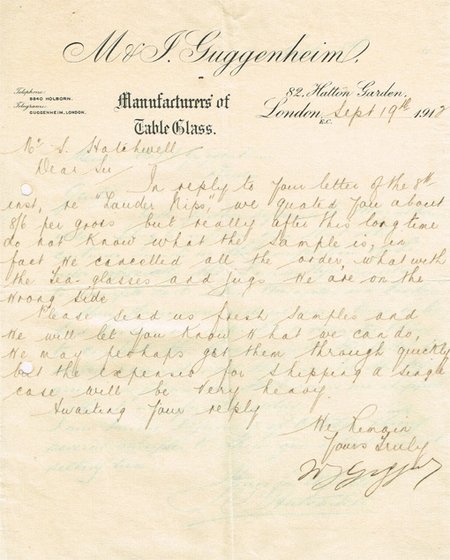 M & J. Guggenheim.
Telephone:
8840 HOLBORN.
Telegrams:
GUGGENHEIM, LONDON.
Manufacturers of
Table Glass.
82, Hatton Garden,
London, E.C. Sept 19th 191
Mr S. Hatchwell
Dear Sir
In reply to your letter of the 8th
inst, re "Lauder Nips, we quoted you about
8/6 per gross but really after this long time
do not know what the sample is, in
fact we cancelled all the order, what with
the Tea-glasses and jugs we are on the
wrong side
Please send us fresh samples and
we will let you know what we can do,
We may perhaps get them through quickly
but the expenses for shipping a single
case will be very heavy.
Awaiting your reply
We Remain
Yours Truly